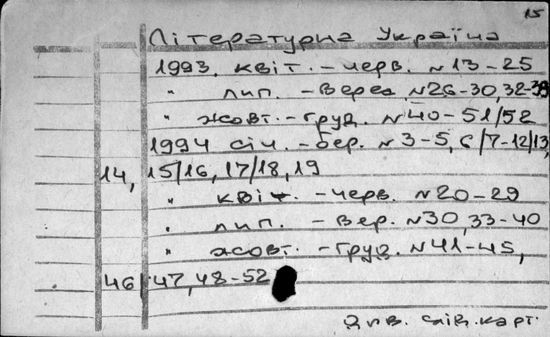 15
Літературна Україна
1993. квіт. - черв. N13-25
" лип. - верес. N26-30, 32-39
" жовт. - груд. N40-51/52
1994 січ. - бер. N3-5, 6/7-12/13,
14, 15/16, 17/18, 19
" квіт. - черв. N20-29
" лип. - вер. N30, 33-40
" жовт. - груд. N41-45,
46, 47, 48-52